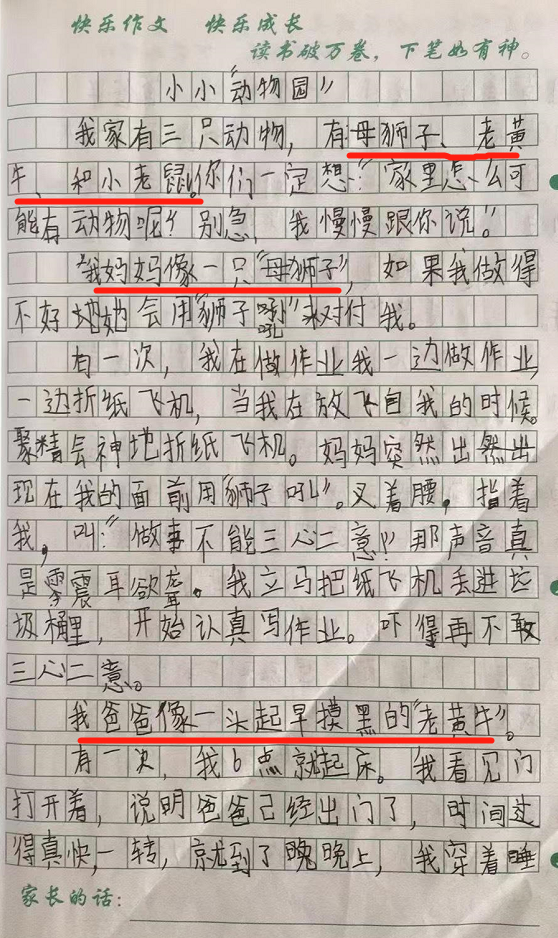 快乐作文 快乐成长
读书破万卷，下笔如有神。
小小“动物园”
我家有三只动物，有母狮子、老黄
牛、和小老鼠。你们一定想：“家里怎么可
能有动物呢？别急，我慢慢跟你说。”
“我妈妈像一只“母狮子”，如果我做得
不好地她会用“狮子吼”来对付我。
有一次，我在做作业我一边做作业，
一边折纸飞机，当我在放飞自我的时候。
聚精会神地折纸飞机。妈妈突然出然出
现在我的面前用“狮子吼”。叉着腰，指着
我，叫：“做事不能三心二意！”那声音真
是震耳欲聋。我立马把纸飞机丢进垃
圾桶里，开始认真写作业。吓得再不敢
三心二意。
我爸爸像一头起早摸黑的“老黄牛”。
有一次，我6点就起床。我看见门
打开着，说明爸爸已经出门了，时间过
得真快，一转，就到了晚晚上，我深着睡
家长的话：